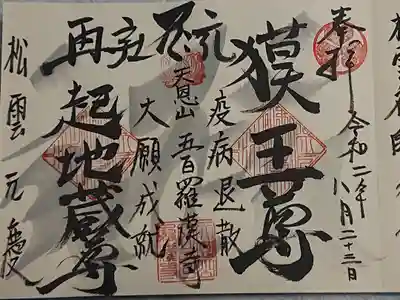 奉拝
令和二年
八月二十三日
獏王尊
疫病退散
天恩山
五百羅漢寺
大願成就
再起地蔵尊
松雲元慶